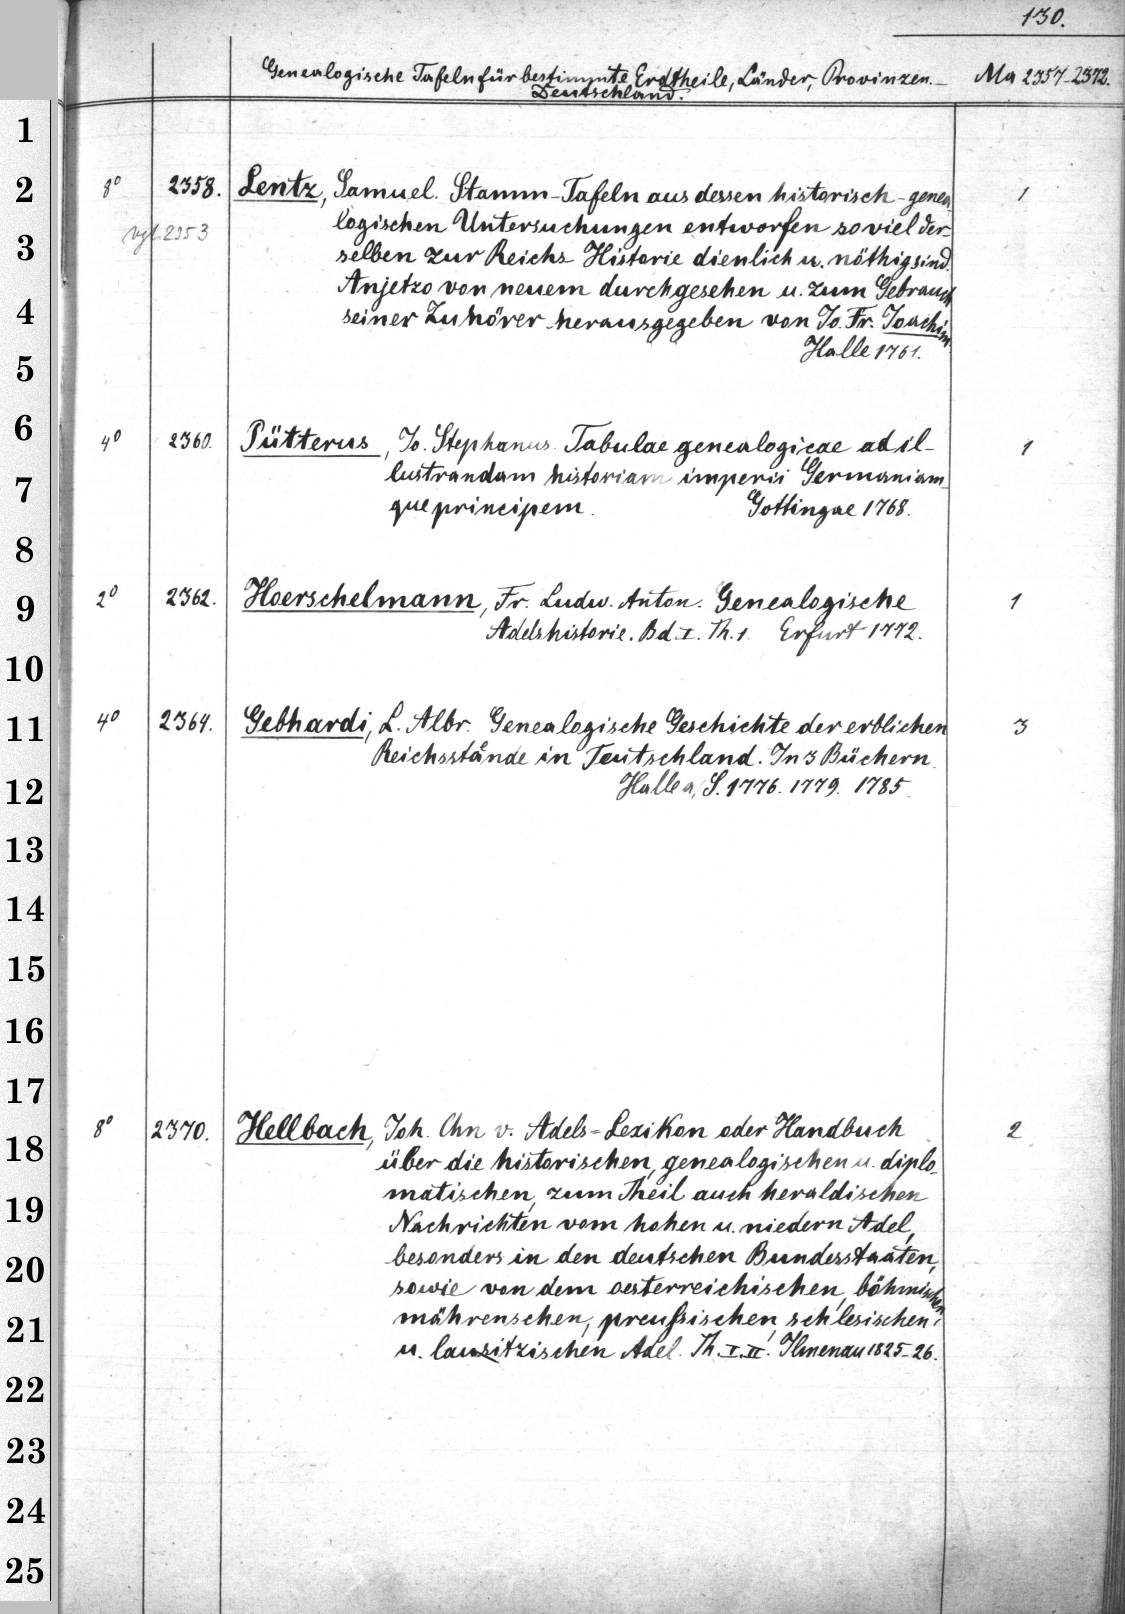 130.
Genealogische Tafeln für bestimmte Erdtheile, Länder, Provinzen.– Ma 2357-2372.
Deutschland.
1
2
3
4
5
6
7
8
9
10
11
12
13
14
15
16
17
18
19
20
21
22
23
24
25
8° 2358. Lentz, Samuel. Stamm-Tafeln aus dessen historisch-genea 1
vgl. 2353 logischen Untersuchungen entworfen so viel der-
selben zur Reichs Historie dienlich u. nöthig sind.
Anjetzo von neuem durchgesehen u. zum Gebrauch
seiner Zuhörer herausgegeben von Jo. Fr. Joachim.
Halle 1761.
4° 2360. Pütterus, Jo. Stephanus. Tabulae genealogicae ad il- 1
lustrandam historiam imperii Germaniam-
que principem. Gottingae 1768.
2° 2362. Hoerschelmann, Fr. Ludw. Anton. Genealogische 1
Adelshistorie. Bd. I. Th. 1. Erfurt 1772.
4° 2364. Gebhardi, L. Albr. Genealogische Geschichte der erblichen 3
Reichsstände in Teutschland. In 3 Büchern.
Halle a/S. 1776. 1779. 1785.
8° 2370. Hellbach, Joh. Chn v. Adels-Lexikon oder Handbuch 2
über die historischen, genealogischen u. diplo-
matischen, zum Theil auch heraldischen
Nachrichten vom hohen u. niedern Adel,
besonders in den deutschen Bundesstaaten,
sowie von dem oesterreichischen, böhmischen,
mährenschen, preußischen, schlesischen
u. lausitzischen Adel. Th. I. II. Ilmenau 1825-26.